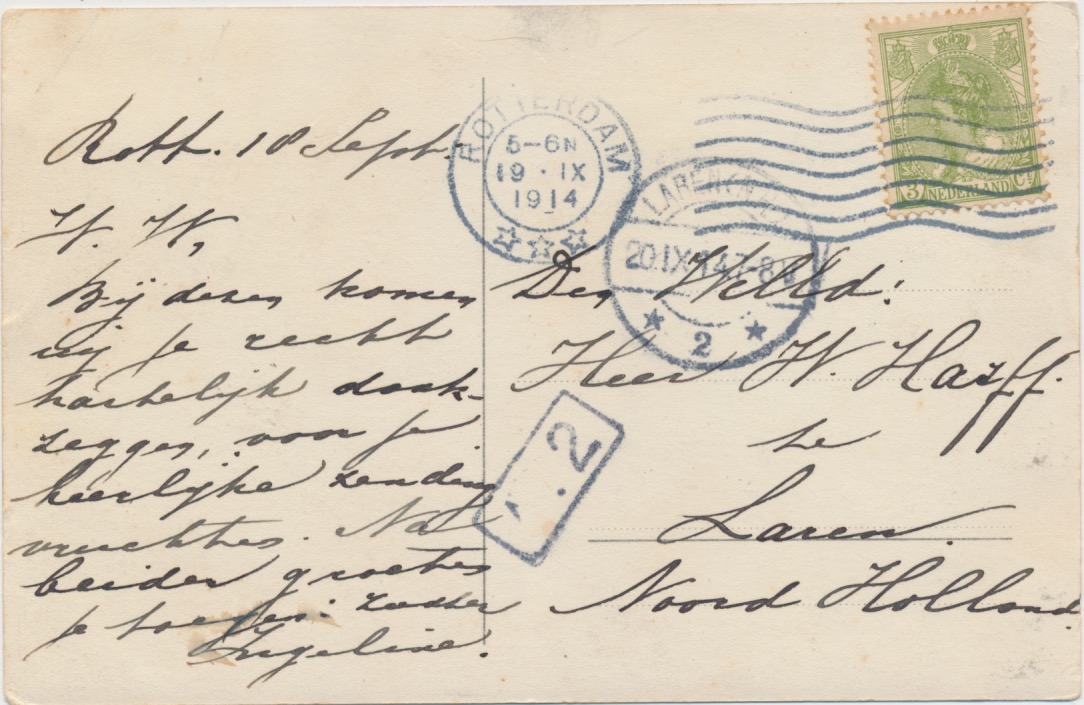 Rott. 18 Sept.
W. W,
Bij dezen komen
wij je recht
hartelijk dank-
zeggen, voor je
heerlijke zending
vruchten. Na
beider groeten
je toegen. zuster
Ingeline.
ROTTERDAM
5-6N
19 · IX
1914
LAREN
20.IX.14 7-8V
2
3 NEDERLAND Ct
Den WelEd:
Heer W. Harff.
te
Laren.
Noord Holland.
2